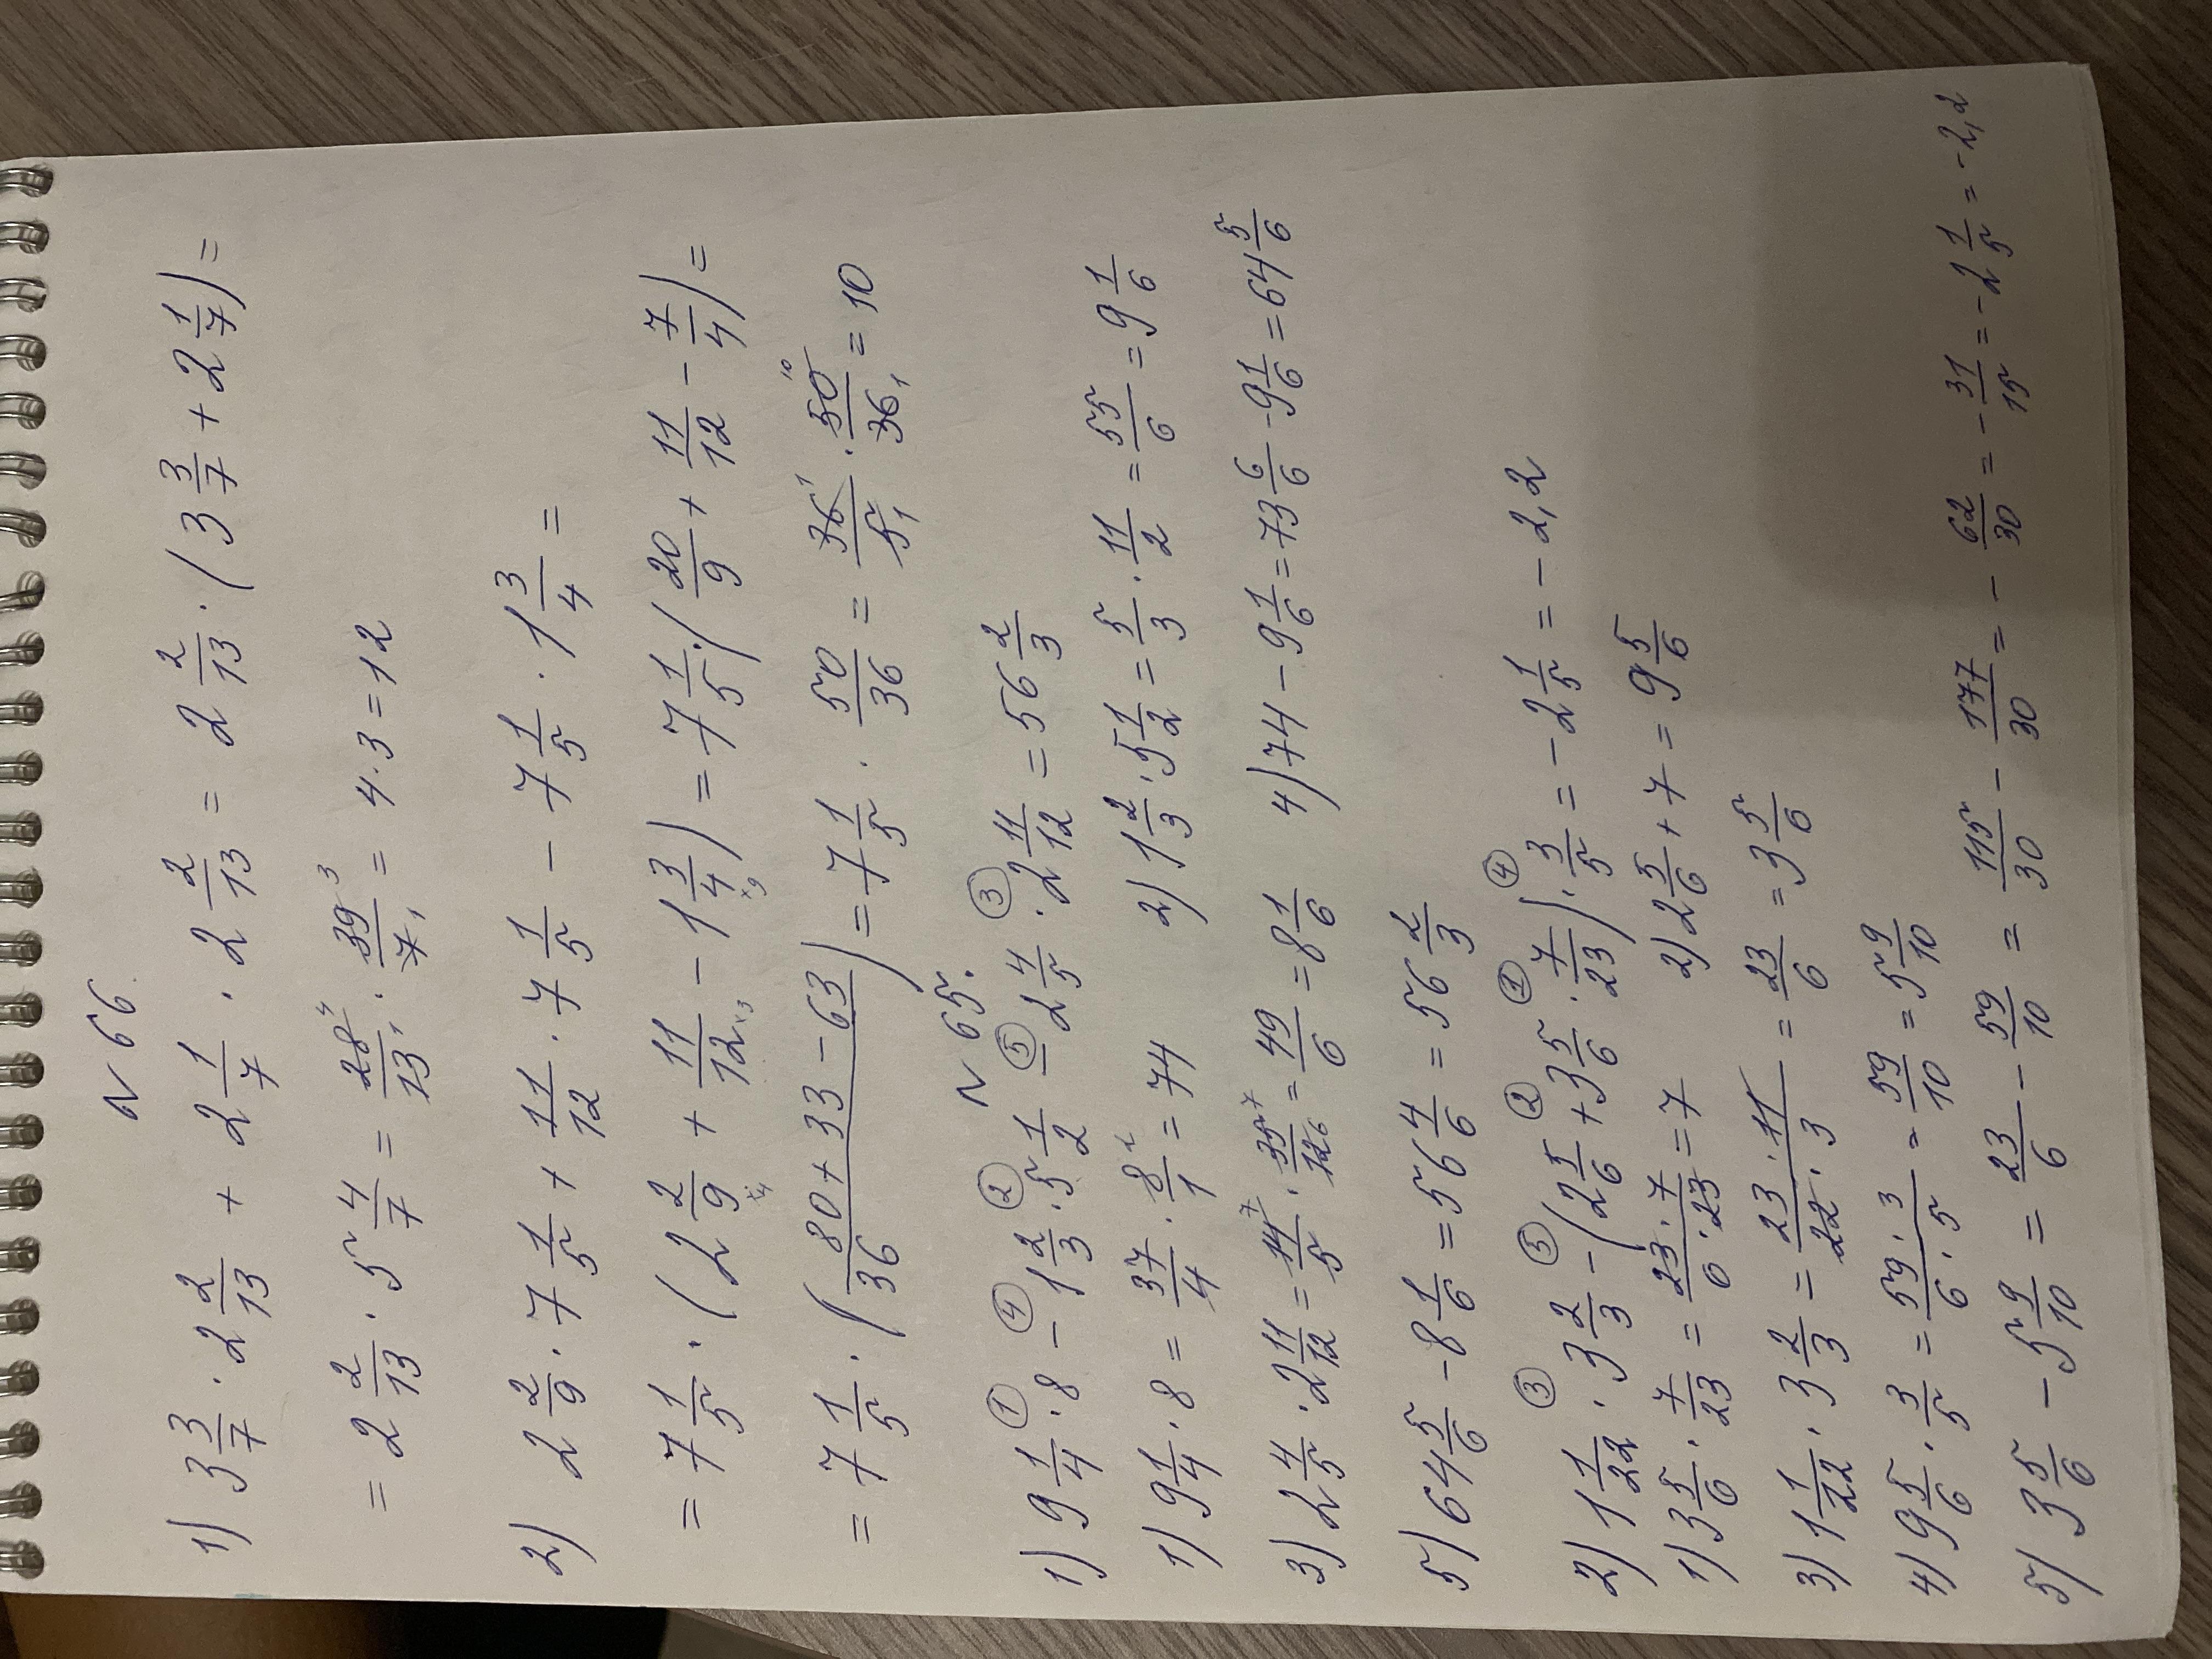 N 66
1) 3 3/7 · 2 2/13 + 2 1/7 · 2 2/13 = 2 2/13 · (3 3/7 + 2 1/7) =
= 2 2/13 · 5 4/7 = 28/13 · 39/7 = 4 · 3 = 12
2) 2 2/9 · 7 1/5 + 11/12 · 7 1/5 - 7 1/5 · 1 3/4 =
= 7 1/5 · (2 2/9 + 11/12 - 1 3/4) = 7 1/5 · (20/9 + 11/12 - 7/4) =
= 7 1/5 · (80 + 33 - 63/36) = 7 1/5 · 50/36 = 36/5 · 50/36 = 10
N 65.
1) 9 1/4 · 8 - 1 2/3 · 5 1/2 - 2 4/5 · 2 11/12 = 56 2/3
1) 9 1/4 · 8 = 37/4 · 8/1 = 74 2) 1 2/3 · 5 1/2 = 5/3 · 11/2 = 55/6 = 9 1/6
3) 2 4/5 · 2 11/12 = 14/5 · 35/12 = 49/6 = 8 1/6 4) 74 - 9 1/6 = 73 6/6 - 9 1/6 = 64 5/6
5) 64 5/6 - 8 1/6 = 56 4/6 = 56 2/3
2) 1 1/22 · 3 2/3 - (2 5/6 + 3 5/6 · 7/23) · 3/5 = - 2 1/5 = - 2,2
1) 3 5/6 · 7/23 = 23 · 7/6 · 23 = 7 2) 2 5/6 + 7 = 9 5/6
3) 1 1/22 · 3 2/3 = 23 · 11/22 · 3 = 23/6 = 3 5/6
4) 9 5/6 · 3/5 = 59 · 3/6 · 5 = 59/10 = 5 9/10
5) 3 5/6 - 5 9/10 = 23/6 - 59/10 = 115/30 - 177/30 = - 62/30 = - 31/15 = - 2 1/5 = - 2,2